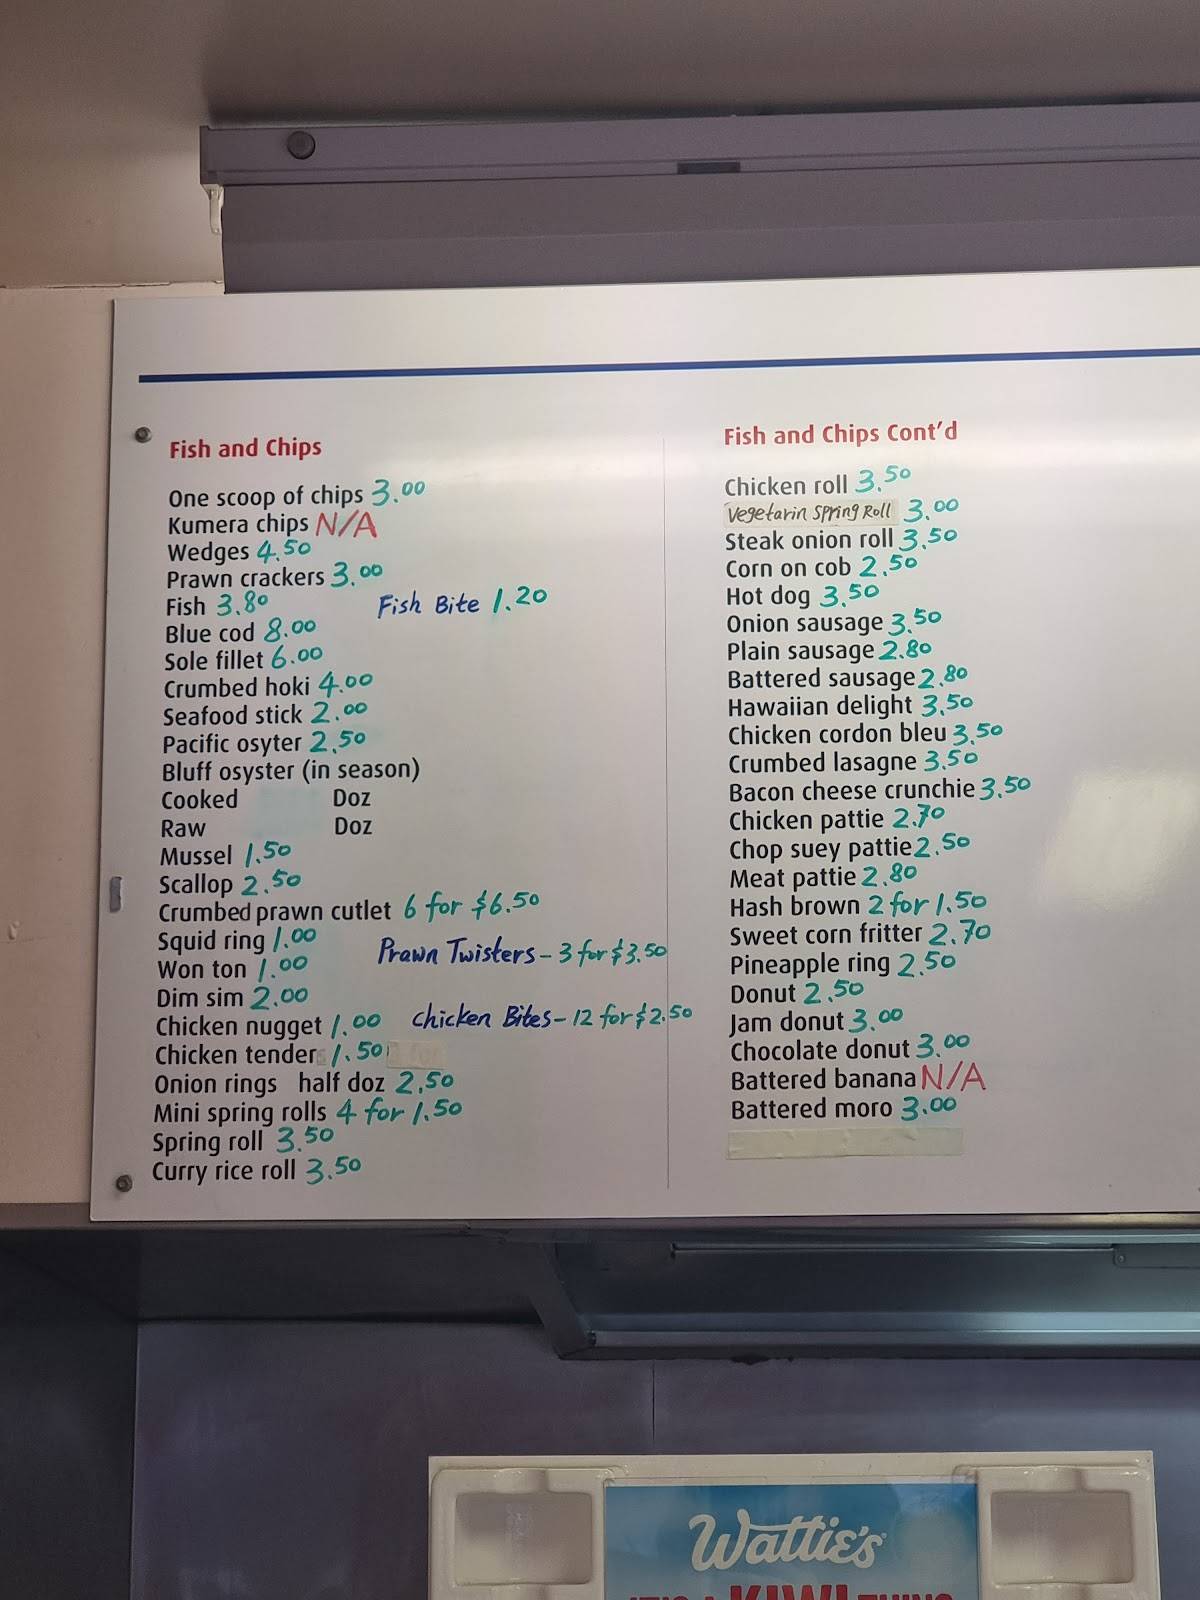 Fish and Chips
One scoop of chips 3.00
Kumera chips N/A
Wedges 4.50
Prawn crackers 3.00
Fish 3.80 Fish Bite 1.20
Blue cod 8.00
Sole fillet 6.00
Crumbed hoki 4.00
Seafood stick 2.00
Pacific osyter 2.50
Bluff osyster (in season)
Cooked Doz
Raw Doz
Mussel 1.50
Scallop 2.50
Crumbed prawn cutlet 6 for $6.50
Squid ring 1.00 Prawn Twisters - 3 for $3.50
Won ton 1.00
Dim sim 2.00
Chicken nugget 1.00 Chicken Bites - 12 for $2.50
Chicken tenders 1.50
Onion rings half doz 2.50
Mini spring rolls 4 for 1.50
Spring roll 3.50
Curry rice roll 3.50
Fish and Chips Cont'd
Chicken roll 3.50
Vegetarin Spring Roll 3.00
Steak onion roll 3.50
Corn on cob 2.50
Hot dog 3.50
Onion sausage 3.50
Plain sausage 2.80
Battered sausage 2.80
Hawaiian delight 3.50
Chicken cordon bleu 3.50
Crumbed lasagne 3.50
Bacon cheese crunchie 3.50
Chicken pattie 2.70
Chop suey pattie 2.50
Meat pattie 2.80
Hash brown 2 for 1.50
Sweet corn fritter 2.70
Pineapple ring 2.50
Donut 2.50
Jam donut 3.00
Chocolate donut 3.00
Battered banana N/A
Battered moro 3.00
Wattie's
IT'S A KIWI THING